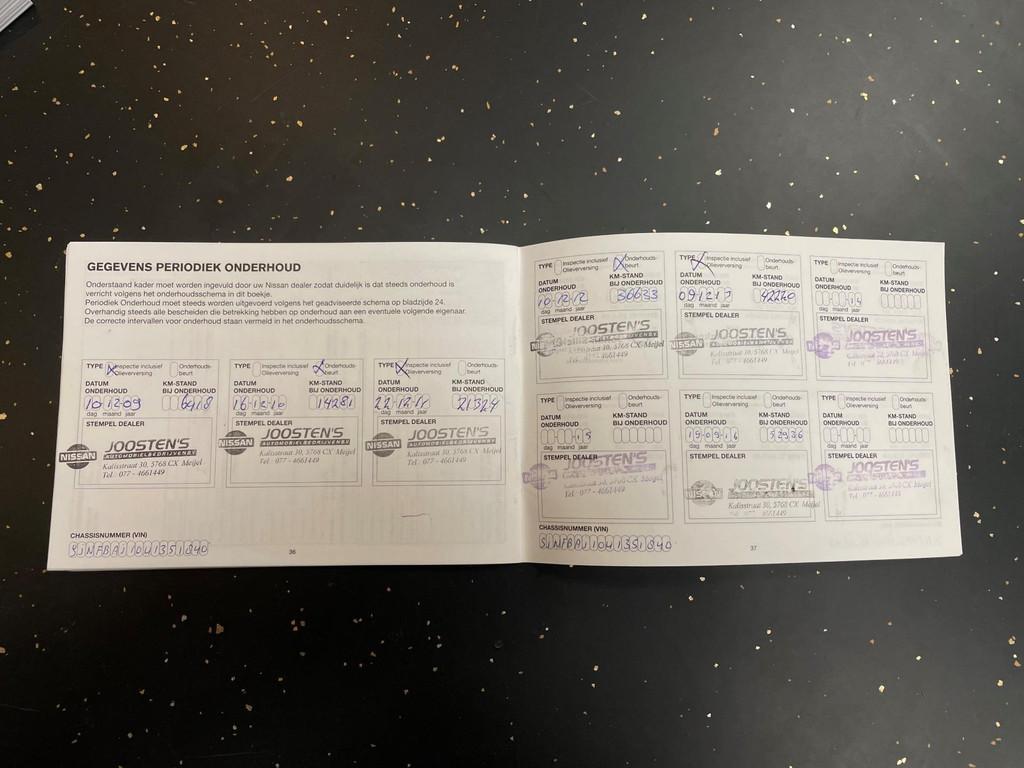 GEGEVENS PERIODIEK ONDERHOUD
Onderstaand kader moet worden ingevuld door uw Nissan dealer zodat duidelijk is dat steeds onderhoud is
verricht volgens het onderhoudsschema in dit boekje.
Periodiek Onderhoud moet steeds worden uitgevoerd volgens het geadviseerde schema op bladzijde 24.
Overhandig steeds alle bescheiden die betrekking hebben op onderhoud aan een eventuele volgende eigenaar.
De correcte intervallen voor onderhoud staan vermeld in het onderhoudsschema.
TYPE Inspectie inclusief Olieverversing Onderhouds-beurt
DATUM ONDERHOUD KM-STAND BIJ ONDERHOUD
10-12-09 6418
dag maand jaar
STEMPEL DEALER
NISSAN JOOSTEN'S
AUTOMOBIELBEDRIJVEN BV
Kalisstraat 30, 5768 CX Meijel
Tel.: 077 - 4661449
TYPE Inspectie inclusief Olieverversing Onderhouds-beurt
DATUM ONDERHOUD KM-STAND BIJ ONDERHOUD
16-12-10 14281
dag maand jaar
STEMPEL DEALER
NISSAN JOOSTEN'S
AUTOMOBIELBEDRIJVEN BV
Kalisstraat 30, 5768 CX Meijel
Tel.: 077 - 4661449
TYPE Inspectie inclusief Olieverversing Onderhouds-beurt
DATUM ONDERHOUD KM-STAND BIJ ONDERHOUD
22-12-11 21324
dag maand jaar
STEMPEL DEALER
NISSAN JOOSTEN'S
AUTOMOBIELBEDRIJVEN BV
Kalisstraat 30, 5768 CX Meijel
Tel.: 077 - 4661449
CHASSISNUMMER (VIN)
SJNFBAJ10U1351840
36
TYPE Inspectie inclusief Olieverversing Onderhouds-beurt
DATUM ONDERHOUD KM-STAND BIJ ONDERHOUD
10-12-12 36633
dag maand jaar
STEMPEL DEALER
JOOSTEN'S
Kalisstraat 30, 5768 CX Meijel
4661449
TYPE Inspectie inclusief Olieverversing Onderhouds-beurt
DATUM ONDERHOUD KM-STAND BIJ ONDERHOUD
09-12-13 42220
dag maand jaar
STEMPEL DEALER
NISSAN JOOSTEN'S
Kalisstraat 30, 5768 CX Meijel
Tel.: 077 - 4661449
TYPE Inspectie inclusief Olieverversing Onderhouds-beurt
DATUM ONDERHOUD KM-STAND BIJ ONDERHOUD
14
dag maand jaar
STEMPEL DEALER
JOOSTEN'S
TYPE Inspectie inclusief Olieverversing Onderhouds-beurt
DATUM ONDERHOUD KM-STAND BIJ ONDERHOUD
15
dag maand jaar
STEMPEL DEALER
JOOSTEN'S
Kalisstraat 30, 5768 CX Meijel
Tel.: 077 - 4661449
TYPE Inspectie inclusief Olieverversing Onderhouds-beurt
DATUM ONDERHOUD KM-STAND BIJ ONDERHOUD
19-09-16 52936
dag maand jaar
STEMPEL DEALER
JOOSTEN'S
Kalisstraat 30, 5768 CX Meijel
4661449
TYPE Inspectie inclusief Olieverversing Onderhouds-beurt
DATUM ONDERHOUD KM-STAND BIJ ONDERHOUD
dag maand jaar
STEMPEL DEALER
JOOSTEN'S
CHASSISNUMMER (VIN)
SJNFBAJ10U1351840
37